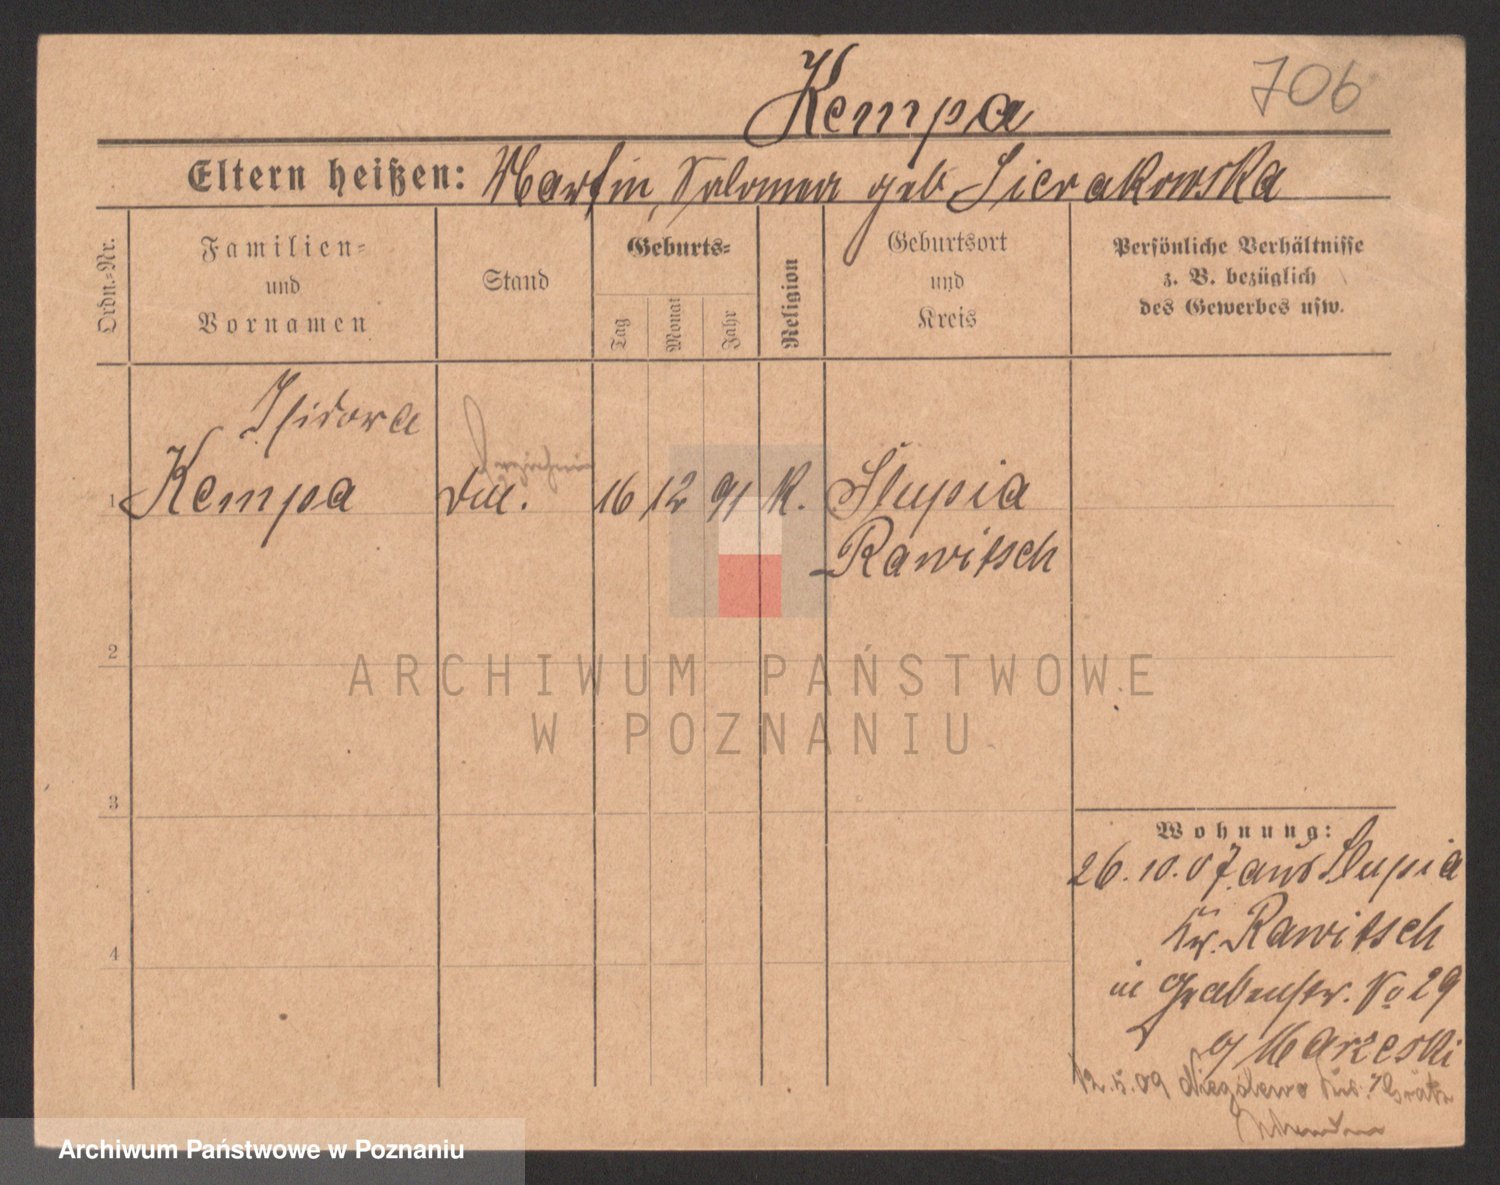 Kempa 706
Eltern heißen: Martin, Salomea geb. Sierakowska
Ordn.-Nr.
Familien-
und
Vornamen
Stand
Geburts-
Tag
Monat
Jahr
Religion
Geburtsort
und
Kreis
Persönliche Verhältnisse
z. B. bezüglich
des Gewerbes usw.
Isidora
1 Kempa led. 16 12 91 K. Slupia
Rawitsch
2
3
4
ARCHIWUM PAŃSTWOWE
W POZNANIU
Wohnung:
26.10.07 aus Slupia
Kr. Rawitsch
in Grabenstr. No 29
12.5.09
Archiwum Państwowe w Poznaniu